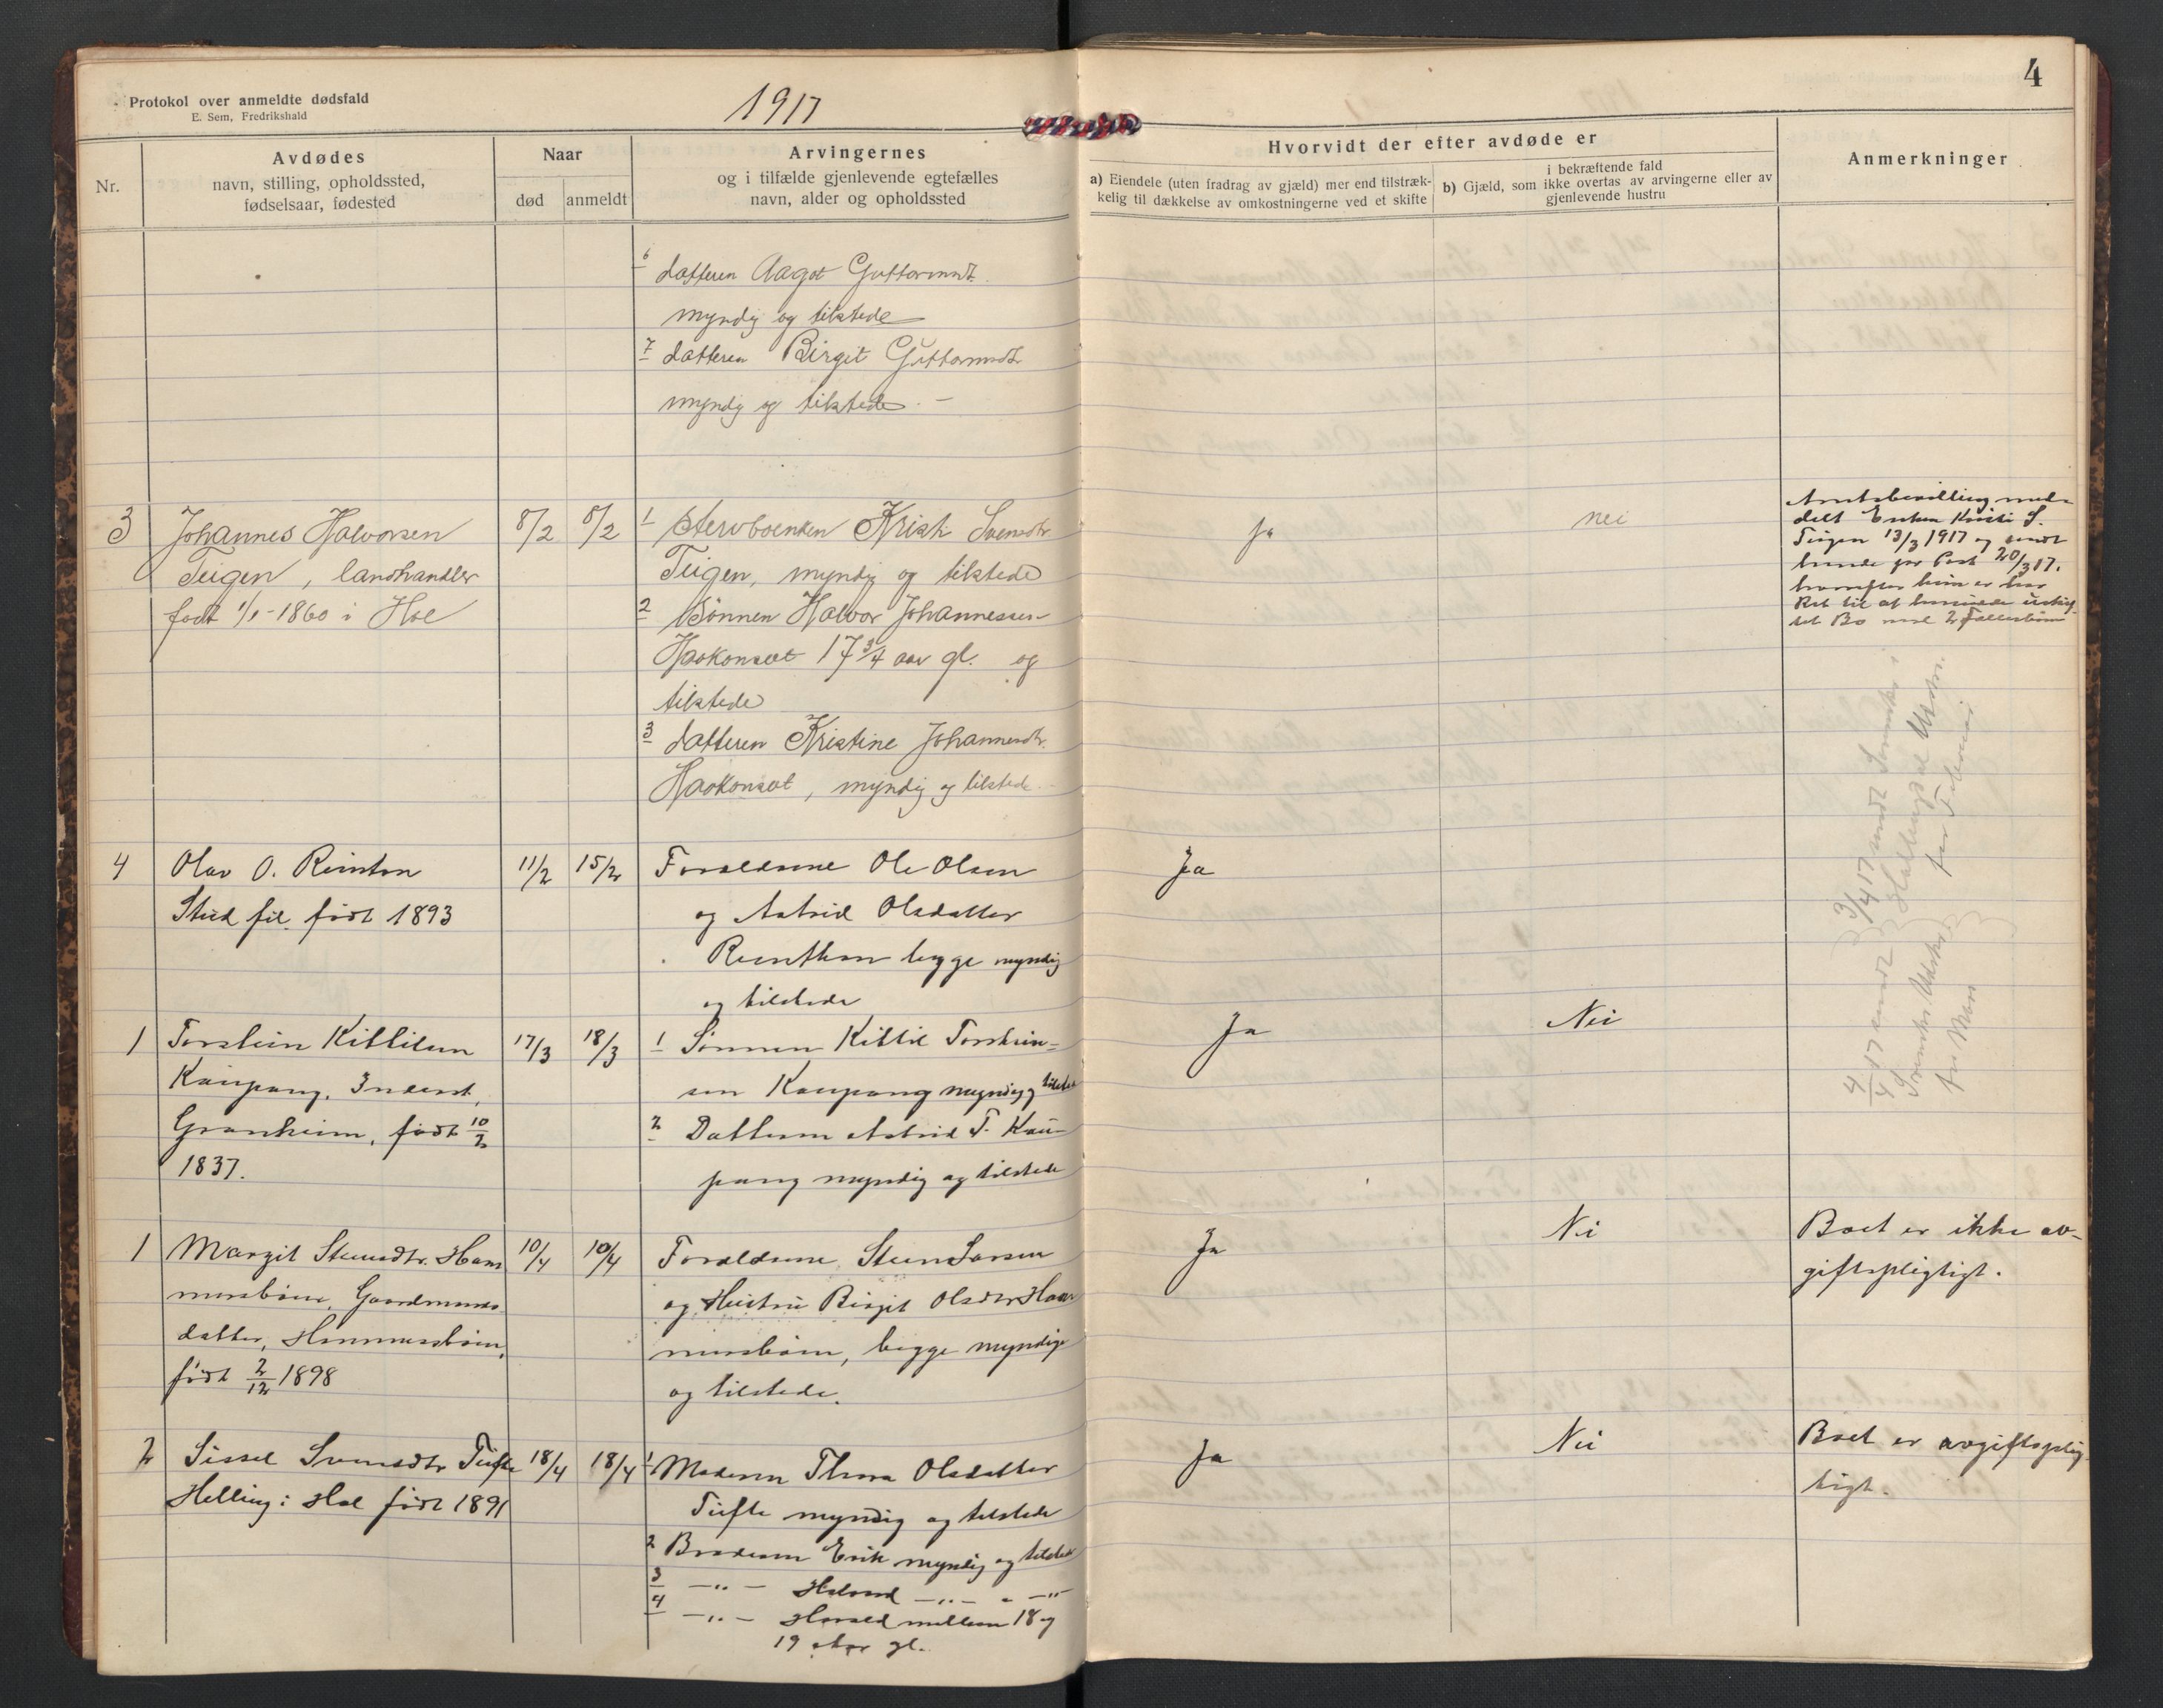 Protokol over anmeldte dødsfald
E. Sem, Fredrikshald
1917
4
Nr.
Avdødes
navn, stilling, opholdssted,
fødselsaar, fødested
Naar
død
anmeldt
Arvingernes
og i tilfælde gjenlevende egtefælles
navn, alder og opholdssted
Hvorvidt der efter avdøde er
a) Eiendele (uten fradrag av gjæld) mer end tilstræk-
kelig til dækkelse av omkostningerne ved et skifte
i bekræftende fald
b) Gjæld, som ikke overtas av arvingerne eller av
gjenlevende hustru
Anmerkninger
6 datteren Aagot Guttormsdt.
myndig og tilstede
7 datteren Birgit Guttormsdtr
myndig og tilstede. -
3
Johannes Halvorsen
Teigen, landhandler
født 1/1-1860 i Hol
8/2
8/2
1 Stervboenken Kristi Svensdtr
Teigen, myndig og tilstede
2 Sønnen Halvor Johannessen
Haakonset 17 3/4 aar gl. og
tilstede
3 datteren Kristine Johannesdtr.
Haakonset, myndig og tilstede.
ja
nei
Amtsbevilling med-
delt Enken Kristi S.
Teigen 13/3 1917 og sendt
hende pr Post 20/3 17.
hvorefter hun er har
Ret til at hensidde uskif-
tet Bo med 2 Fællesbørn
4
Olav O. Reinton
Stud fil. født 1893
11/2
15/2
Forældrene Ole Olsen
og Astrid Olsdatter
Reinthon begge myndig
og tilstede
Ja
3/4 17 sendt
Hallingdal
4/4 17 sendt
1
Torstein Kittilsen
Kaupang, Inderst,
Granheim, født 10/2
1837.
17/3
18/3
1 Sønnen Kittil Torstein-
sen Kaupang myndig og tilstede
2 Datteren Astrid T. Kau-
pang myndig og tilstede
Ja
Nei
1
Margit Steinsdtr. Ham
mersbøen, Gaardmands
datter, Hammersbøen,
født 2/12 1898
10/4
10/4
Forældrene Stein Larsen
og Hustru Birgit Olsdtr Ham-
mersbøen, begge myndige
og tilstede.
Ja
Nei
Boet er ikke av-
giftspligtigt.
2
Sissel Svensdtr Tufte
Helling i Hol født 1891
18/4
18/4
1 Moderen Thora Olsdatter
Tufte myndig og tilstede
2 Broderen Erik myndig og tilstede
3 —"— Halvard —"— " —"
4 —"— Harald mellem 18 og
19 Aar gl.
Ja
Nei
Boet er avgiftsplig-
tigt.